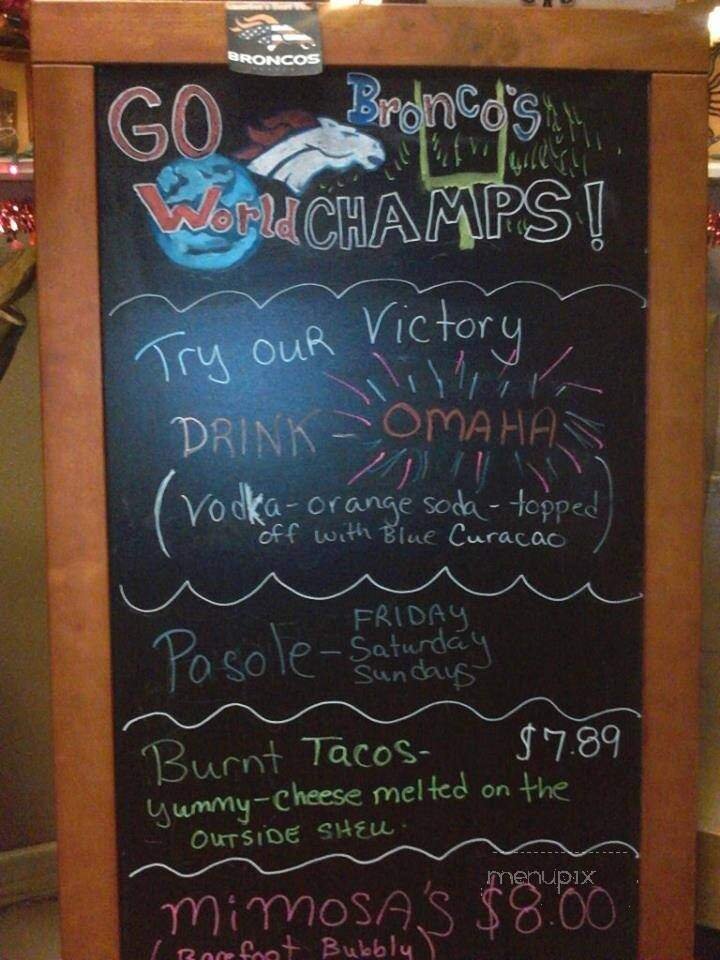 BRONCOS
GO Bronco's
World CHAMPS!
Try our Victory
DRINK - OMAHA
(Vodka - orange soda - topped
off with Blue Curacao)
Pasole - FRIDAY
Saturday
Sundays
Burnt Tacos - $7.89
yummy - cheese melted on the
OUTSIDE SHELL.
menupix
MIMOSA'S $8.00
(Barefoot Bubbly)